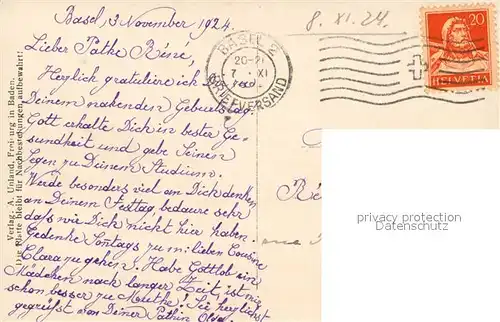 Basel 3 November 1924.
8. XI. 24.
Lieber Pathe Réné,
Herzlich gratuliere ich zu
Deinem nahenden Geburtstag.
Gott erhalte Dich in bester Ge-
sundheit und gebe Seinen
Segen zu Deinem Studium.
Werde besonders viel an Dich denken
an Deinem Festtag, bedaure sehr
dass wir Dich nicht hier haben.
Gedenke Sontags zu m. lieben Cousine
Clara zu gehen. Habe Gottlob ein
Mädchen nach langer Zeit, ist mir
schon besser zu Muthe! Sei herzlichst
gegrüsst von Deiner Pathin
Verlag. A. Unland, Freiburg in Baden.
Die Platte bleibt für Nachbestellungen aufbewahrt.
BASEL 2
20-21
7. XI
BRIEFVERSAND
20
HELVETIA
Ré
privacy protection
Datenschutz